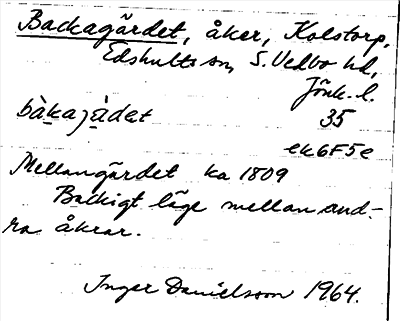 Backagärdet, åker, Kolstorp,
Edshults sn, S. Vedbo hd,
Jönk. l.
bàkajàdet 35
ek6F5e
Mellangärdet ka 1809
Backigt läge mellan and-
ra åkrar.
Inger Danielsson 1964.